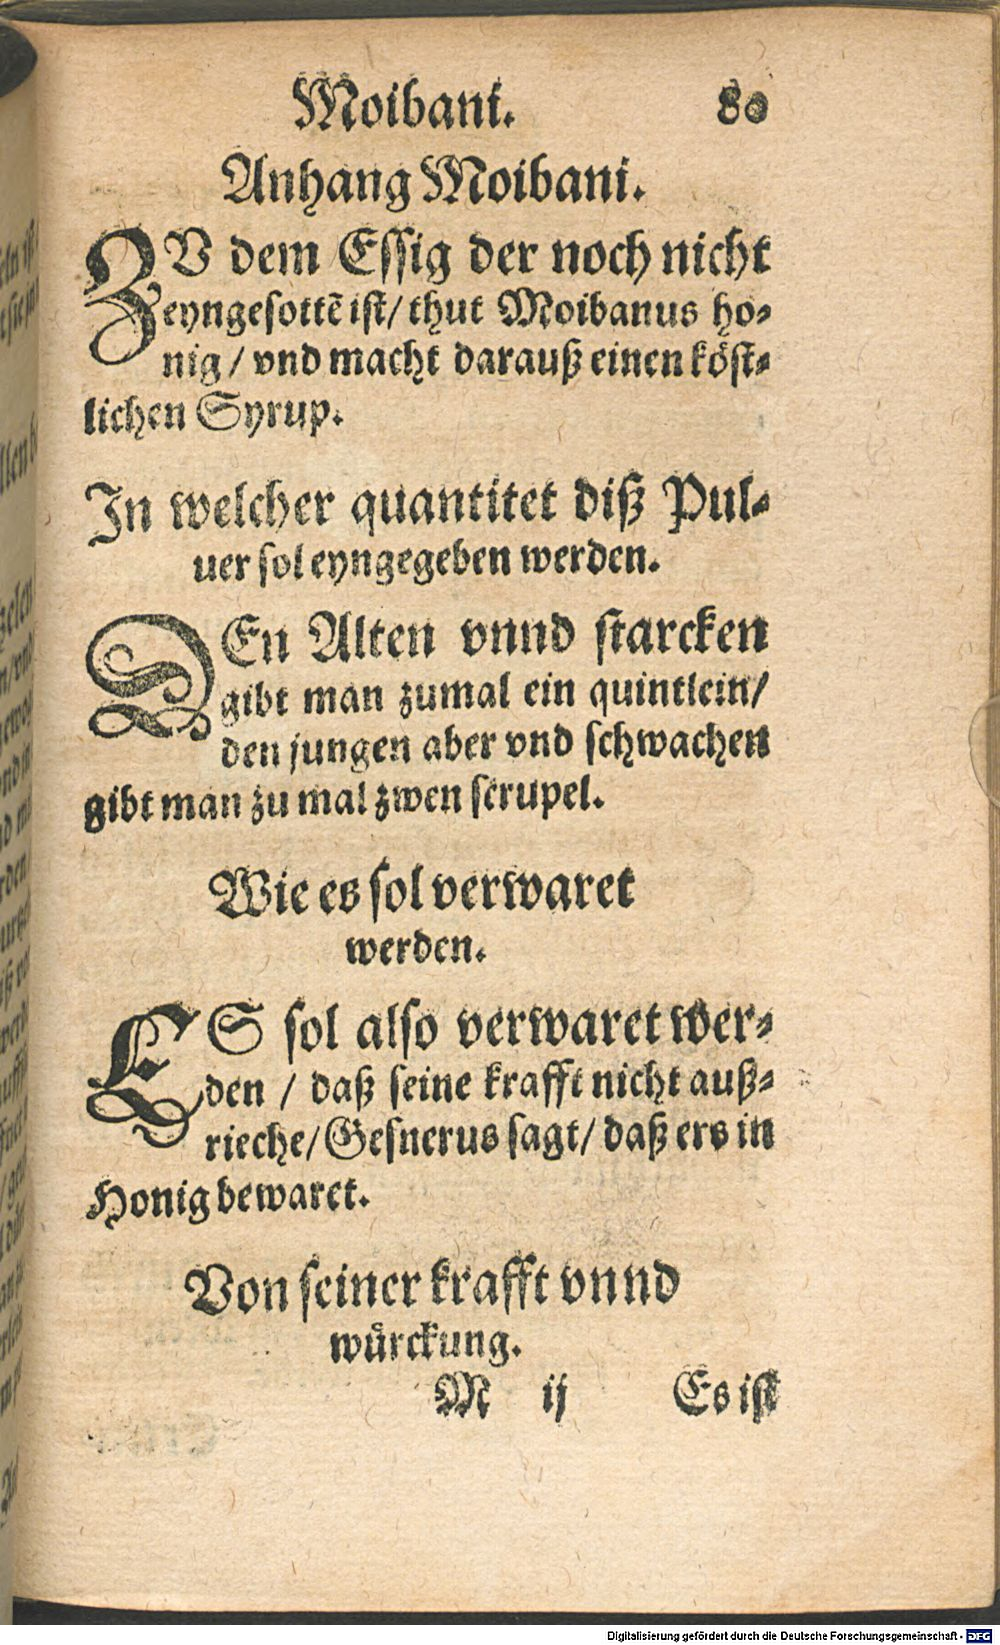 Moibani. 80
Anhang Moibani.
ZV dem Essig der noch nicht
eyngesottē ist/ thut Moibanus ho-
nig / vnd macht darauß einen köst-
lichen Syrup.
In welcher quantitet diß Pul-
uer sol eyngegeben werden.
DEn Alten vnnd starcken
gibt man zumal ein quintlein/
den jungen aber vnd schwachen
gibt man zu mal zwen scrupel.
Wie es sol verwaret
werden.
ES sol also verwaret wer-
den / daß seine krafft nicht auß-
rieche/ Gesnerus sagt/ daß ers in
Honig bewaret.
Von seiner krafft vnnd
würckung.
M ij Es ist
Digitalisierung gefördert durch die Deutsche Forschungsgemeinschaft - DFG